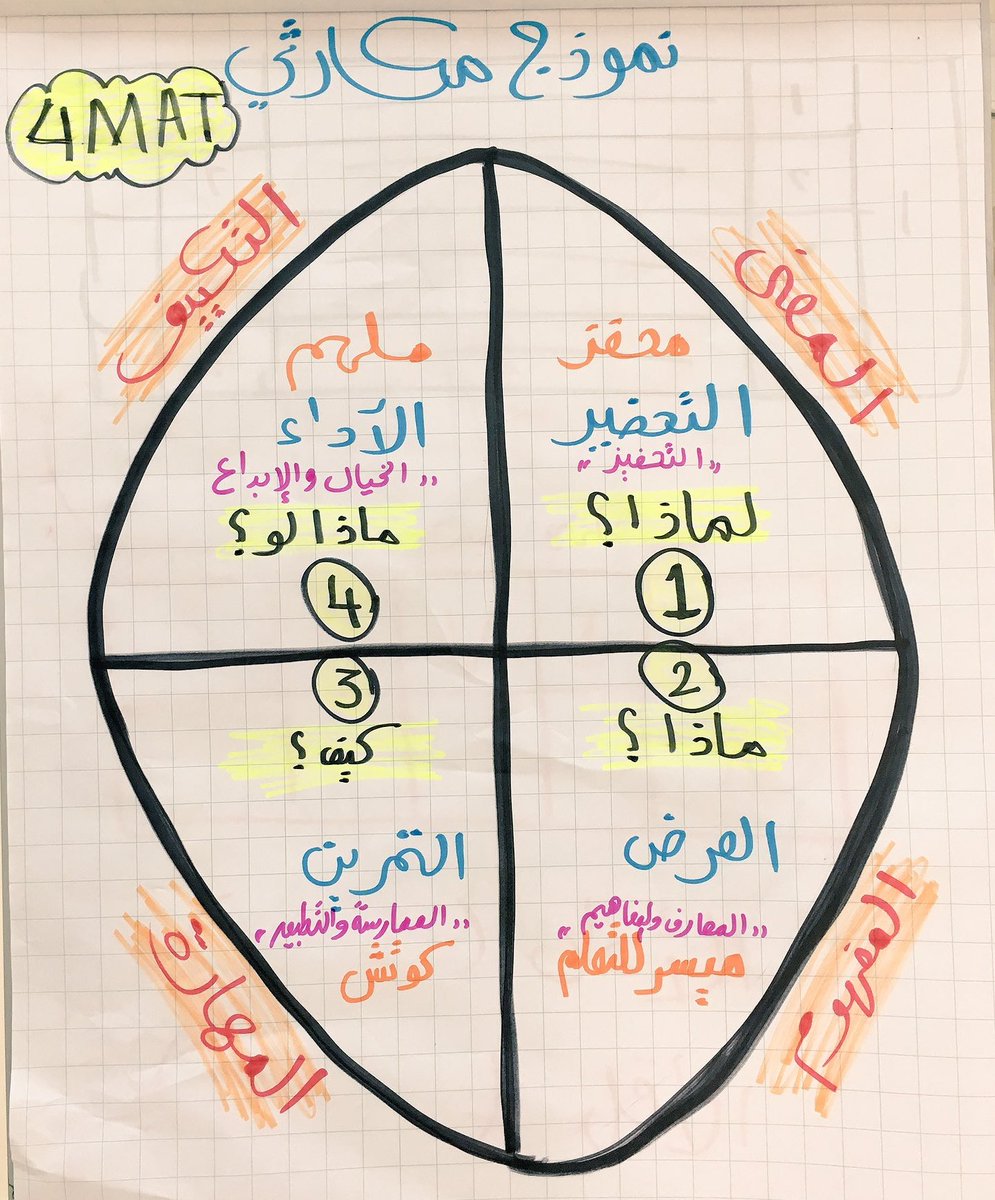 نموذج مكارثي
4MAT
المعنى
محفز
التحضير
"التحفيز"
لماذا؟
1
2
ماذا؟
العرض
"المعارف والمفاهيم"
ميسر للتعلم
المفهوم
3
كيف؟
التمرين
"الممارسة والتطبيق"
كوتش
المهارة
التكييف
ملهم
الآداء
"الخيال والإبداع"
ماذا لو؟
4